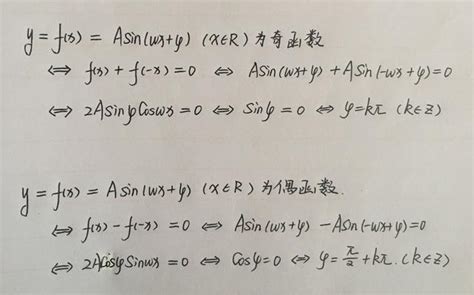 y = f(x) = Asin(wx+φ) (x∈R) 为奇函数
⇔ f(x) + f(-x) = 0 ⇔ Asin(wx+φ) + ASin(-wx+φ)=0
⇔ 2AsinφCoswx = 0 ⇔ Sinφ = 0 ⇔ φ=kπ (k∈Z)
y = f(x) = Asin(wx+φ) (x∈R) 为偶函数.
⇔ f(x) - f(-x) = 0 ⇔ Asin(wx+φ) - ASin(-wx+φ)=0
⇔ 2ACosφSinwx = 0 ⇔ Cosφ=0 ⇔ φ = π/2 + kπ. (k∈Z)